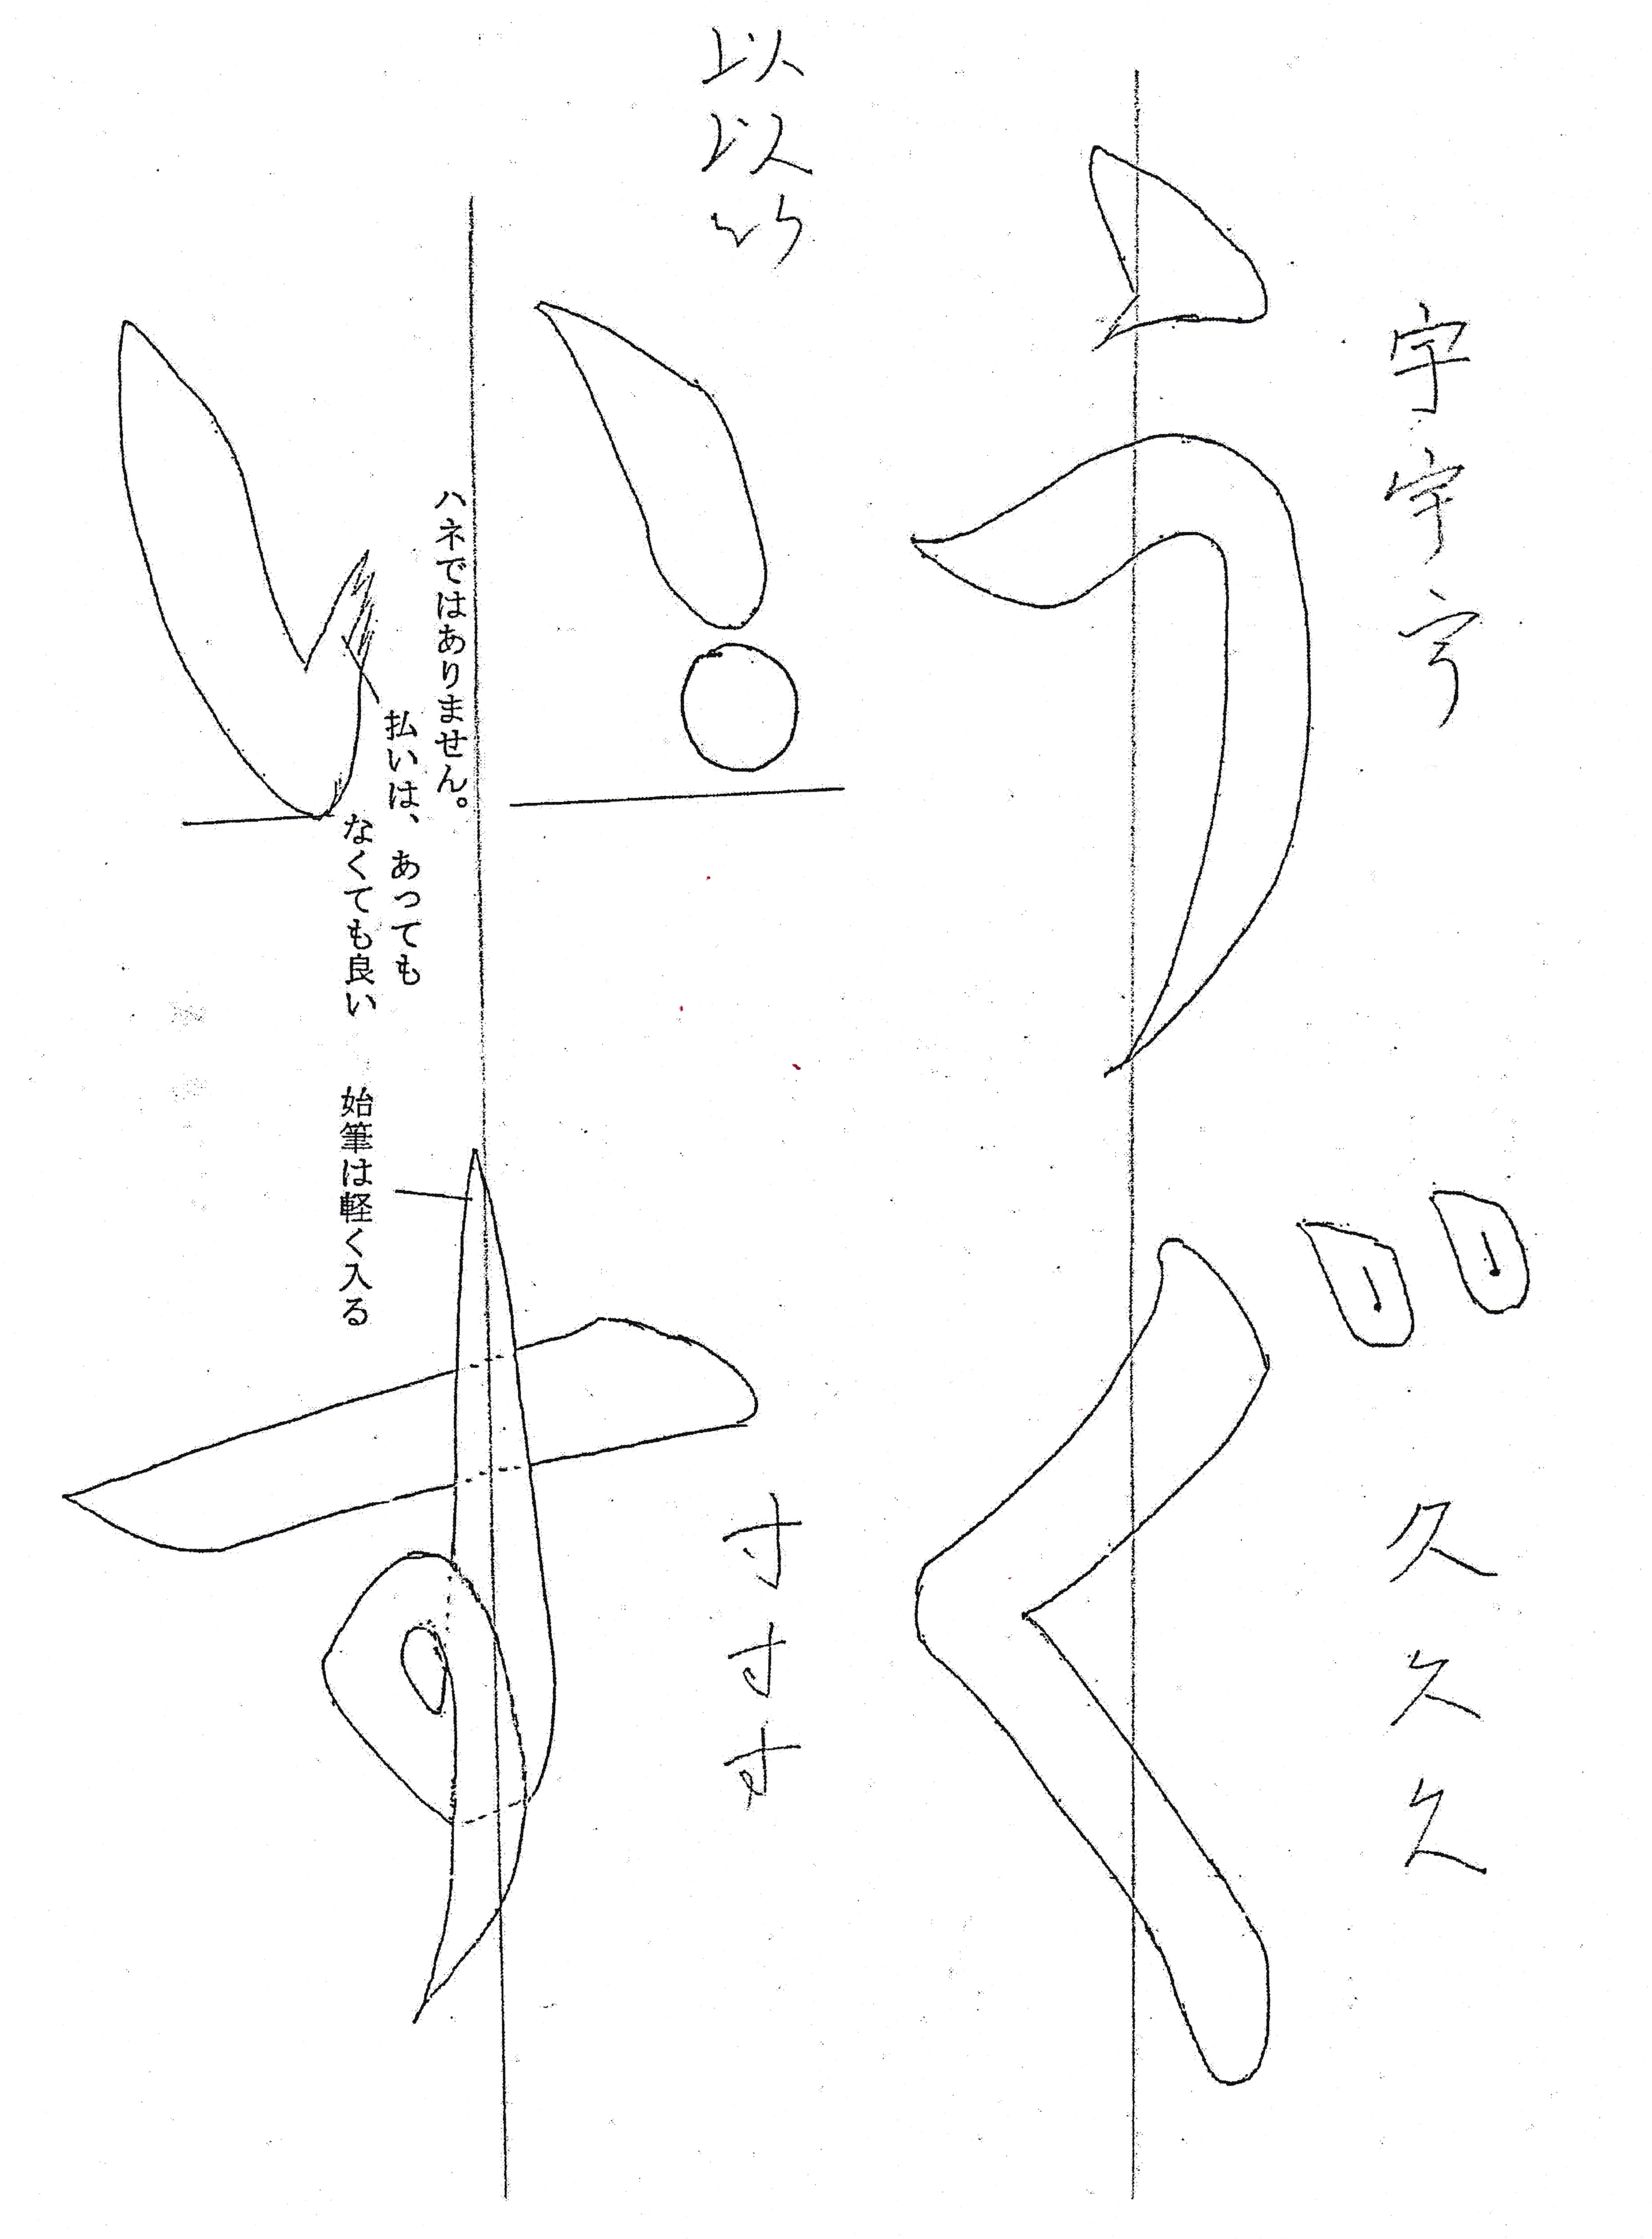 宇宇宇
久久久
うぐ
以以以
寸寸寸
いす
ハネではありません。
払いは、あっても
なくても良い
始筆は軽く入る